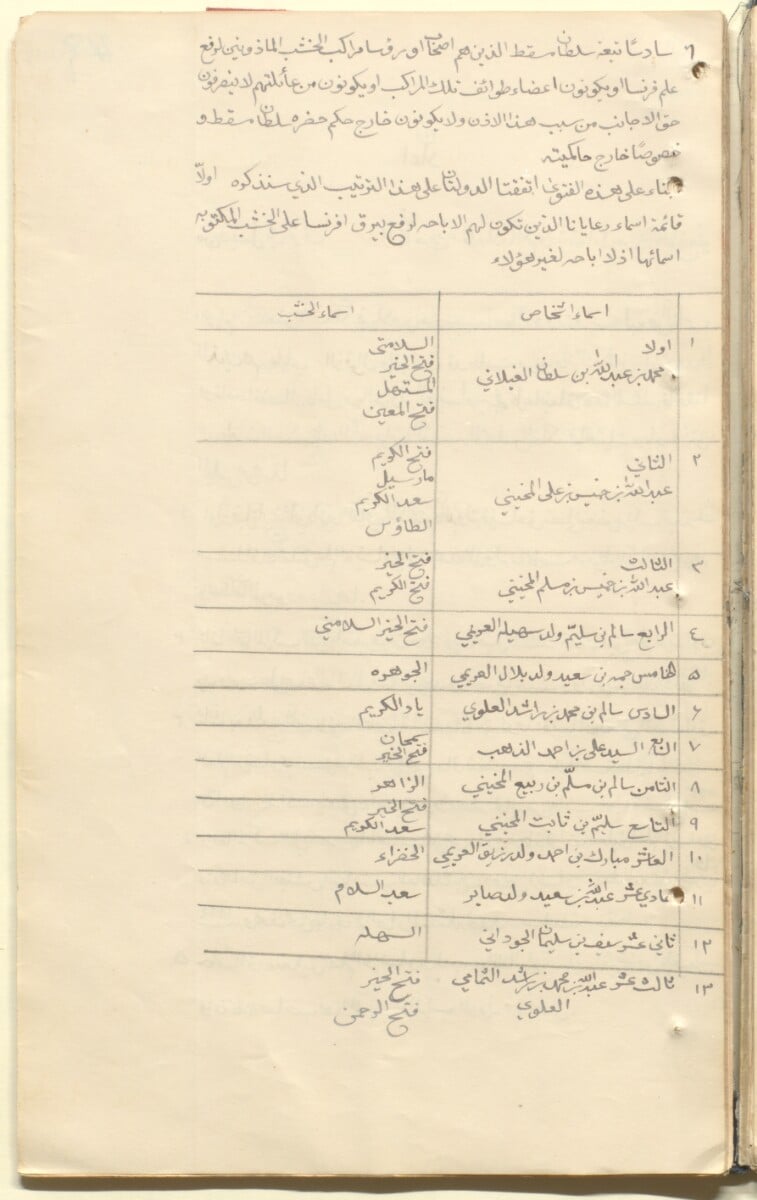 ٦ سادسًا تبعة سلطان مسقط الذين هم اصحاب او رؤسا مراكب الخشب الماذونين لرفع
علم فرنسا او يكونون اعضاء طوائف تلك المراكب او يكونون من عائلتهم لا يتصرفون
حق الاجانب من سبب هذا الاذن ولا يكونون خارج حكم حضره سلطان مسقط و
خصوصًا خارج حاكميته
بناء على هذه الفتوى اتفقتا الدولتان على هذا الترتيب الذي سنذكره اولاً
قائمة اسماء رعايانا الذين تكون لهم الاباحه لرفع بيرق افرنسا على الخشب المكتوبه
اسمائها اذ لا اباحه لغير هؤلاء
اسماء اشخاص اسماء الخشب
١ اولا السلامتى
محمد بن عبد الله بن سلطان الغيلاني فتح الخير
المستهل
فتح المعين
٢ الثاني فتح الكريم
عبد الله بن خميس بن على المخيني مارسيل
سعد الكريم
الطاؤس
٣ الثالث فتح الخير
عبد الله بن خميس بن مسلم المخيني فتح الكريم
٤ الرابع سالم بن سليّم ولد سهيله العريمي فتح الخير السلامتي
٥ خامس جمعه بن سعيد ولد بلال العريمي الجوهره
٦ السادس سالم بن محمد بن راشد العلوي ياد الكريم
٧ السابع السيد على بن احمد الذهب سمحان
فتح الخير
٨ الثامن سالم بن مسلّم بن ربيع المخيني الزاهر
٩ التاسع سليّم بن ثابت المخيني فتح الخير
سعد الكريم
١٠ العاشر مبارك بن احمد ولد زريق العريمي الخضراء
١١ حادي عشر عبد الله بن سعيد ولد صابر سعد السلام
١٢ ثاني عشر سيف بن سليمان الجوداني السهله
١٣ ثالث عشر عبد الله بن محمد بن راشد الثمامي فتح الخير
العلوي فتح الرحمن